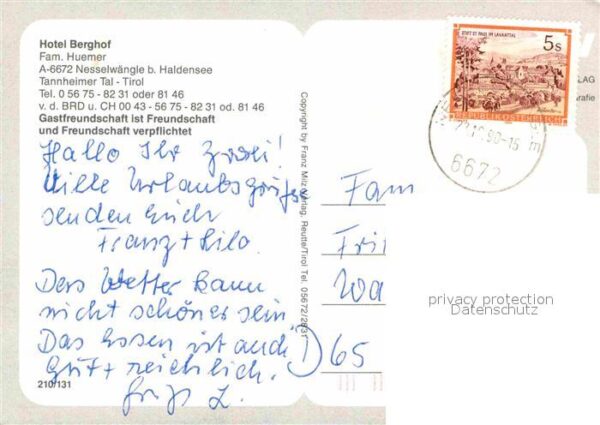 Hotel Berghof
Fam. Huemer
A-6672 Nesselwängle b. Haldensee
Tannheimer Tal - Tirol
Tel. 0 56 75 - 82 31 oder 81 46
v. d. BRD u. CH 00 43 - 56 75 - 82 31 od. 81 46
Gastfreundschaft ist Freundschaft
und Freundschaft verpflichtet
Hallo Ihr zwei!
Viele Urlaubsgrüße
senden Euch
Franz + Lilo.
Das Wetter kann
nicht schöner sein
Das Essen ist auch
gut + reichlich.
L.
210/131
Copyright by Franz Milz Verlag, Reutte/Tirol Tel. 05672/2831
STIFT ST. PAUL IM LAVANTTAL
5s
REPUBLIK ÖSTERREICH
90-15
6672
LAG
rafie
Fam
Fri
Wa
D 65
privacy protection
Datenschutz